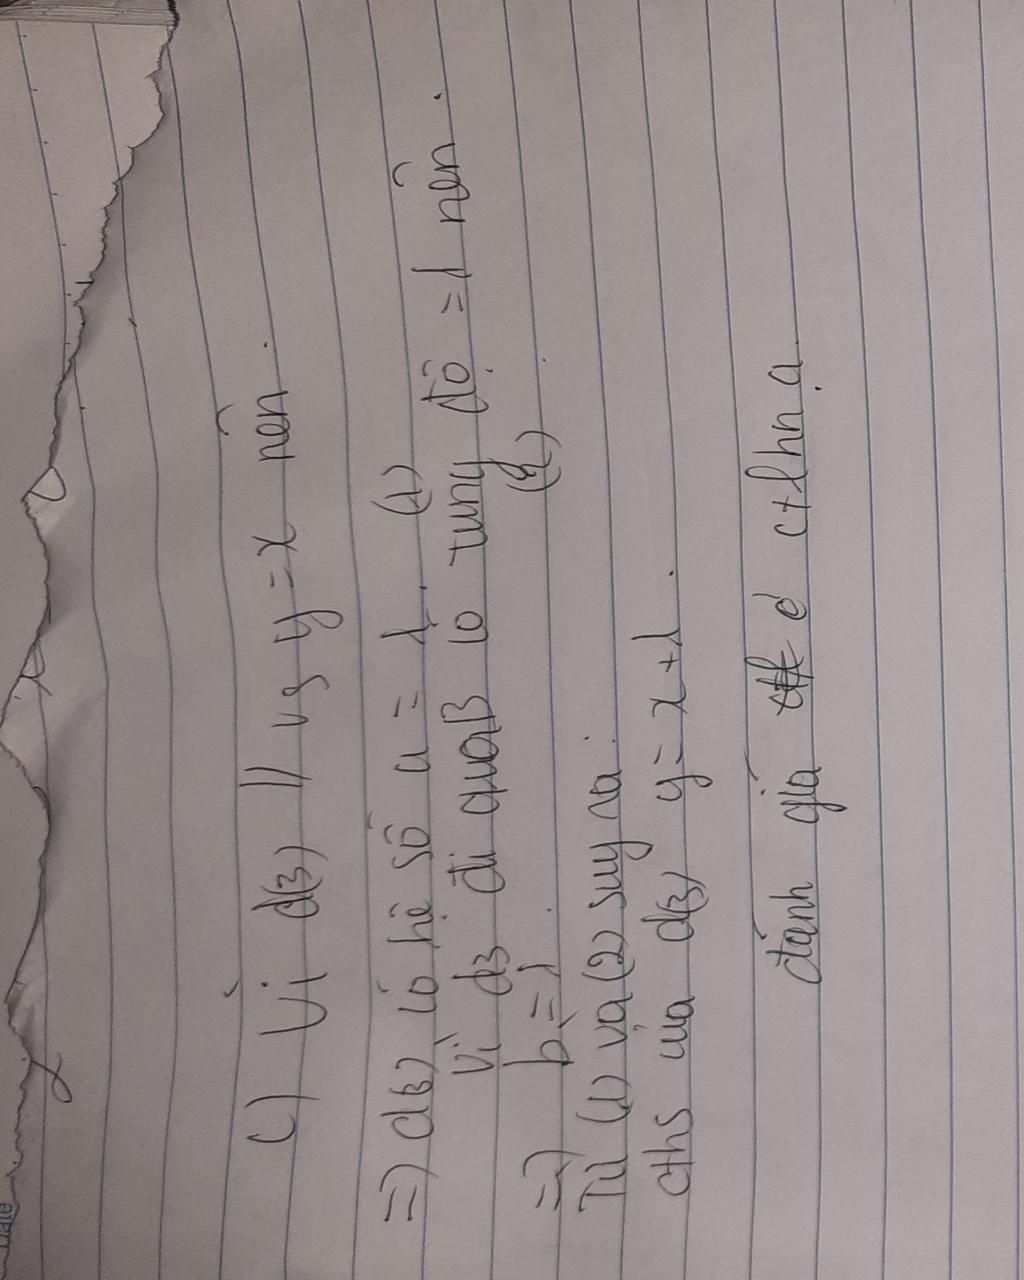 c) Vì d(3) // vs y = x nên.
=) d(3) có hệ số a = 1. (1)
Vì d3 đi qua B có tung độ = 1 nên.
=) b = 1. (2)
Từ (1) và (2) suy ra:
cths của d(3) y = x + 1.
đánh giá
Date